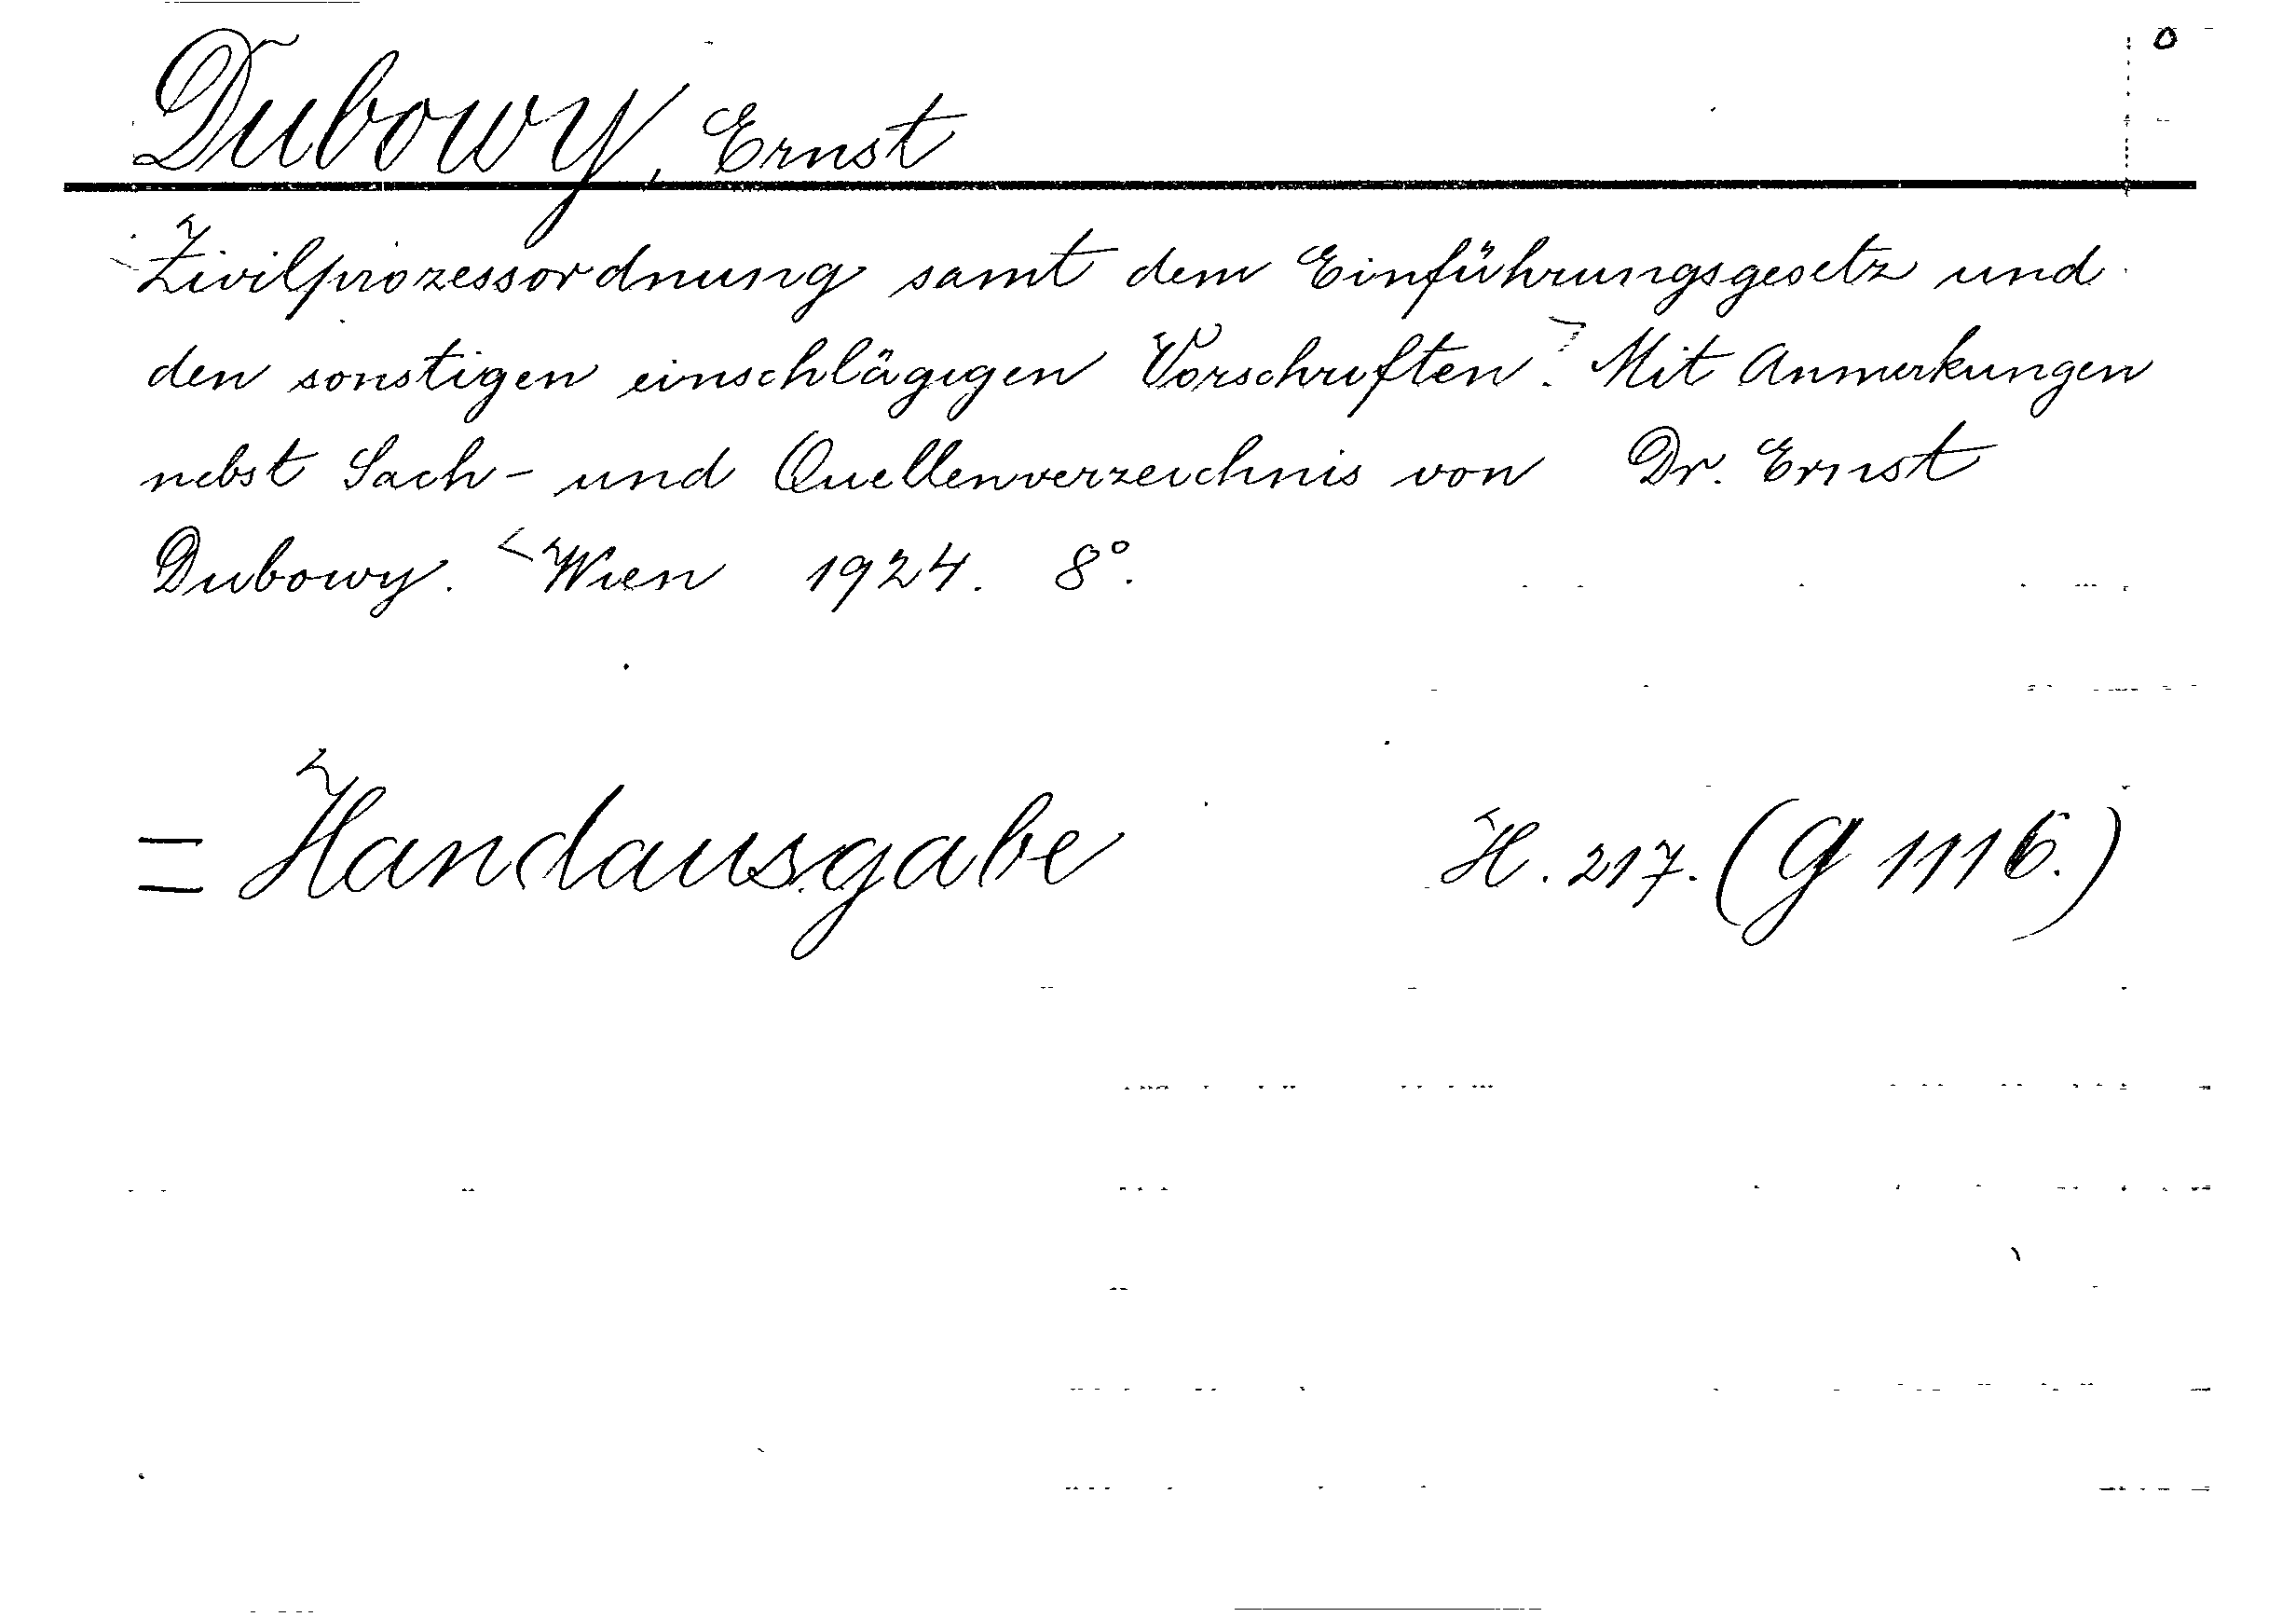 Dubowy, Ernst
Zivilprozessordnung samt dem Einführungsgesetz und
den sonstigen einschlägigen Vorschriften. Mit Anmerkungen
nebst Sach- und Quellenverzeichnis von Dr. Ernst
Dubowy. Wien 1924. 8°.
= Handausgabe H. 217. (G 1116.)